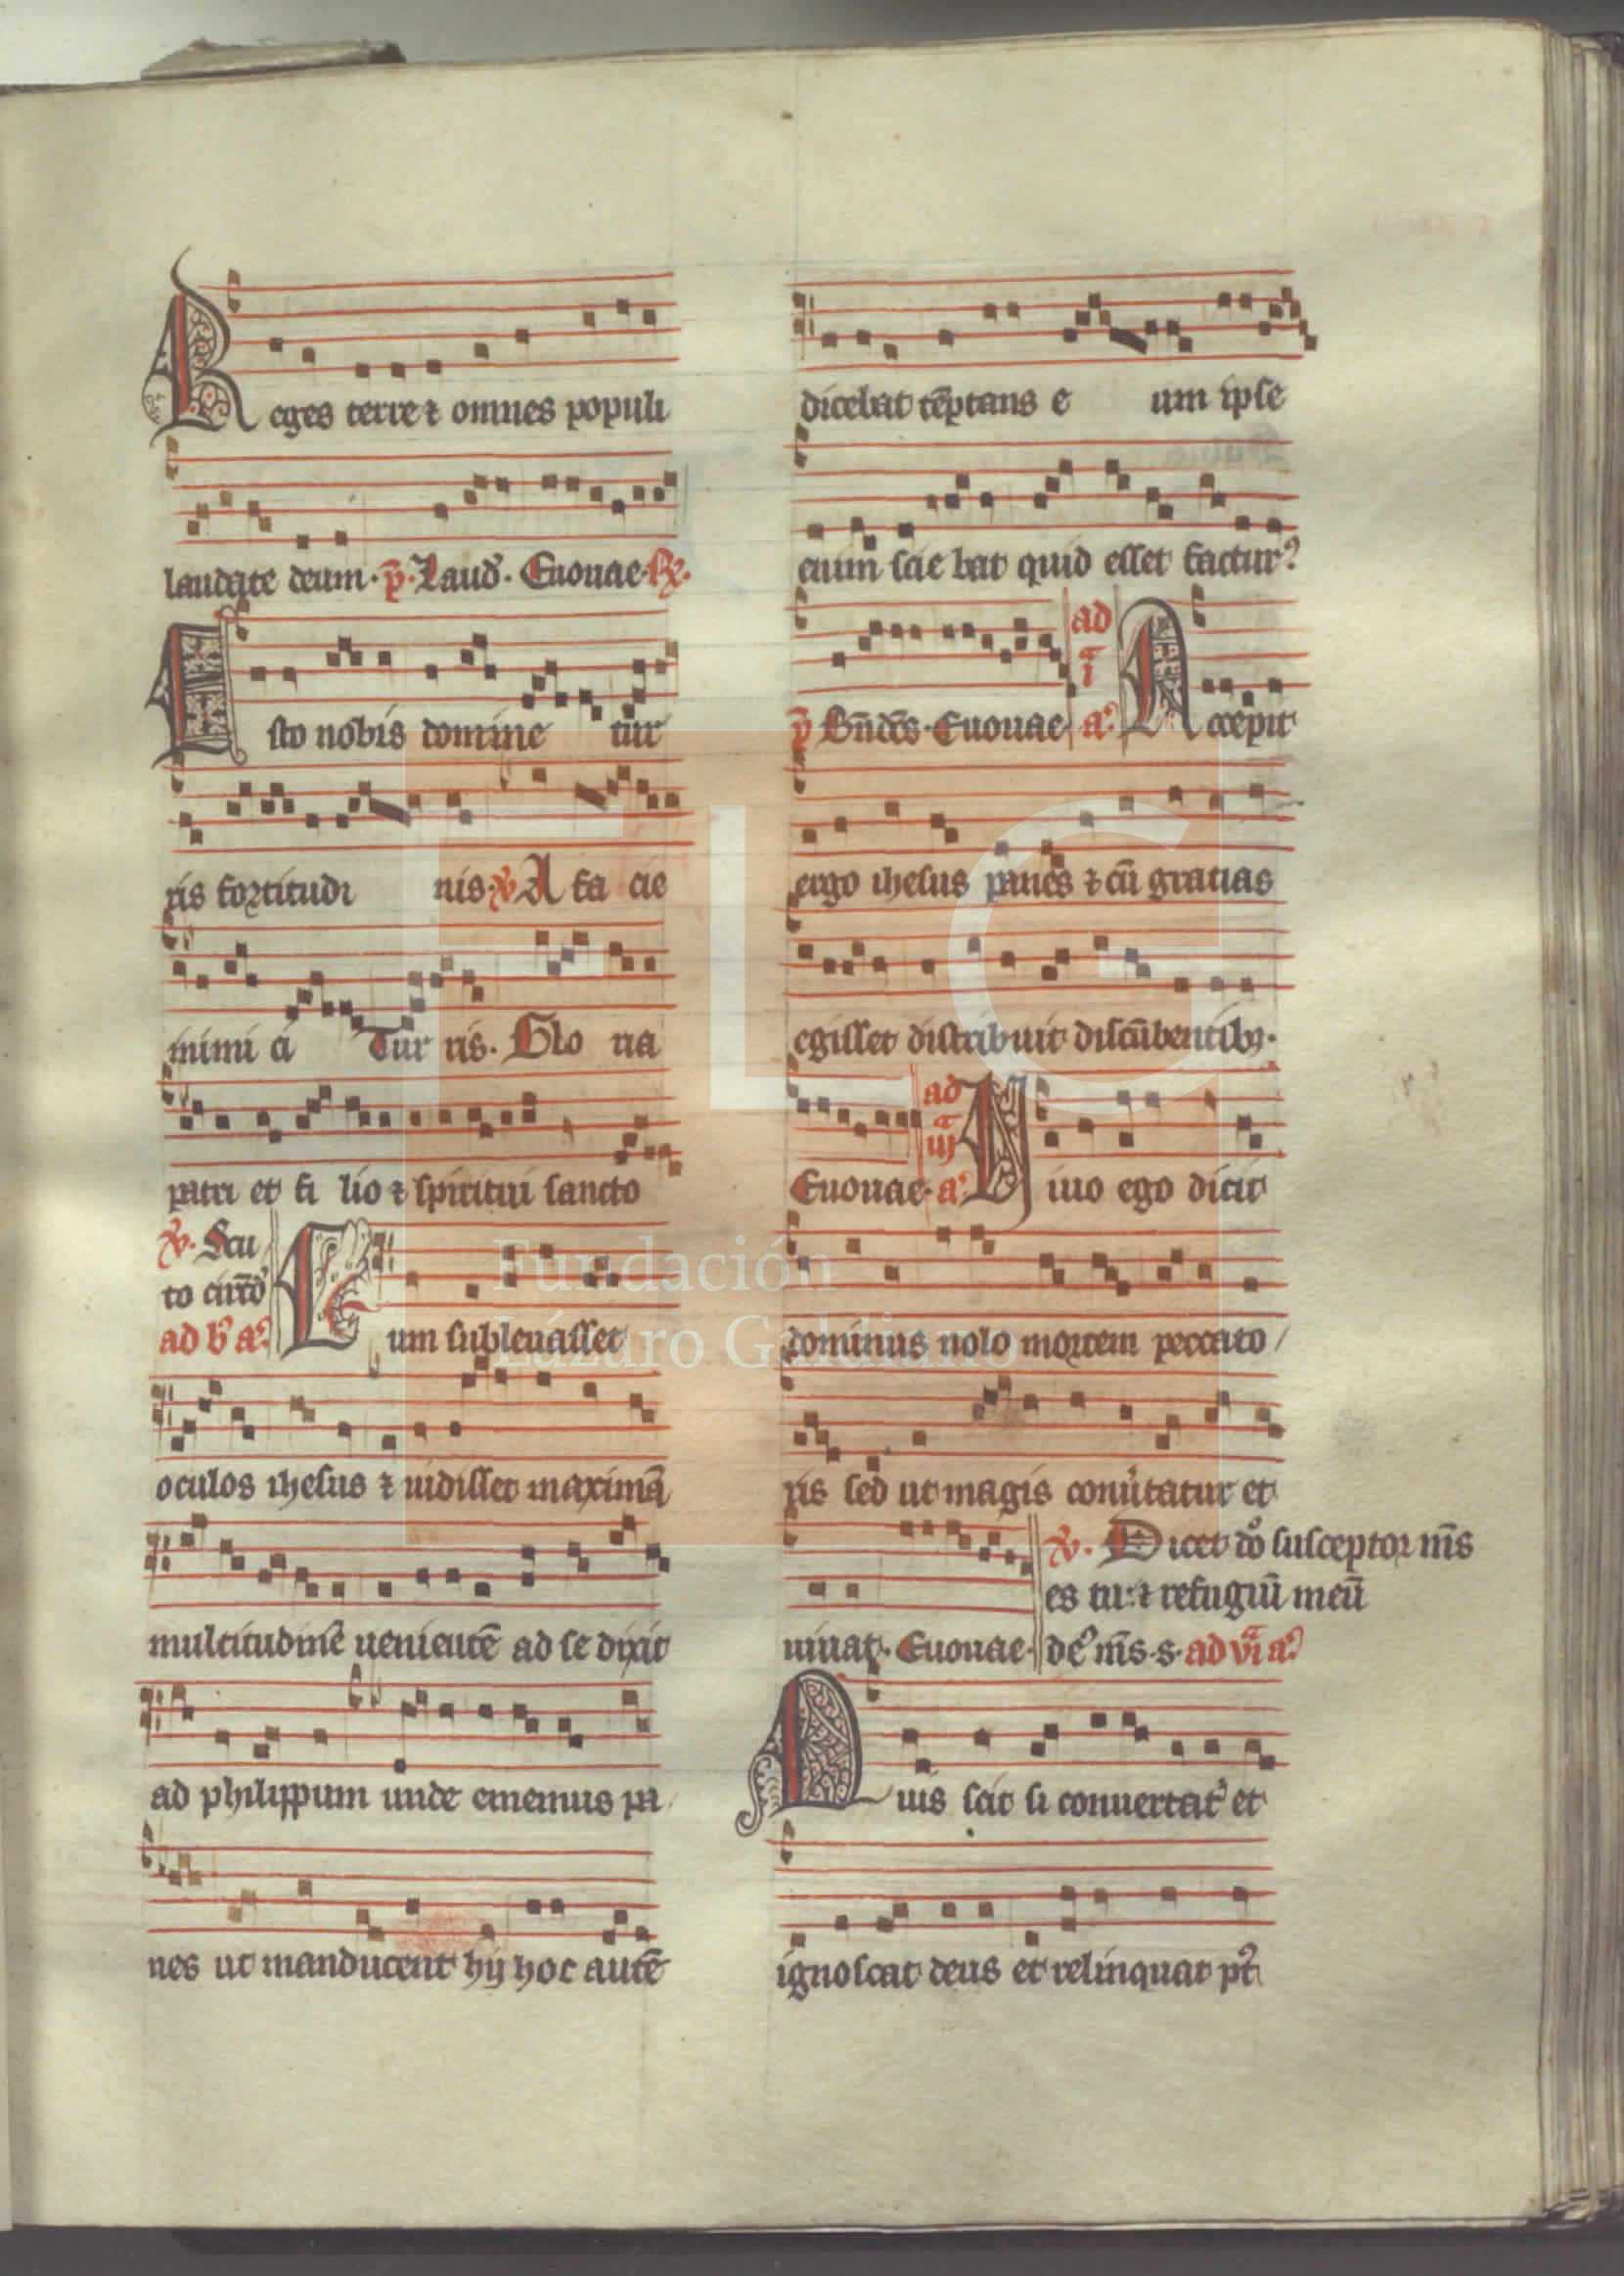 Reges terre ⁊ omnes populi
laudate deum · p̄ · Laud̄ · Euouae · ℟ ·
Esto nobis domine tur
ris fortitudi nis · ℣ A fa cie
inimi ci Tur ris · Glo ria
patri et fi lio ⁊ spiritui sancto
℣ · Scu
to circūd̓
ad b̓ a᷒
Cum subleuasset
oculos ihesus ⁊ uidisset maximā
multitudinē uenientē ad se dixit
ad philippum unde ememus pa
nes ut manducent hij hoc autē
dicebat tēptans e um ipse
enim scie bat quid esset factur᷒
p̄ Bn̄dc̄s · Euouae
ad i a᷒
Accepit
ergo ihesus panes ⁊ cū gratias
egisset distribuit discūbentibꝫ ·
Euouae · ad iij a᷒
Uiuo ego dicit
dominus nolo mortem peccato /
ris sed ut magis conu̓tatur et
uiuat · Euouae ·
℣ · Dicet dō susceptor m̄s
es tu : ⁊ refugiū meū
de᷒ m̄s · s · ad vi a᷒
Quis scit si conuertat᷒ et
ignoscat deus et relinquat pt̓
FLG
Fundación
Lázaro Galdiano